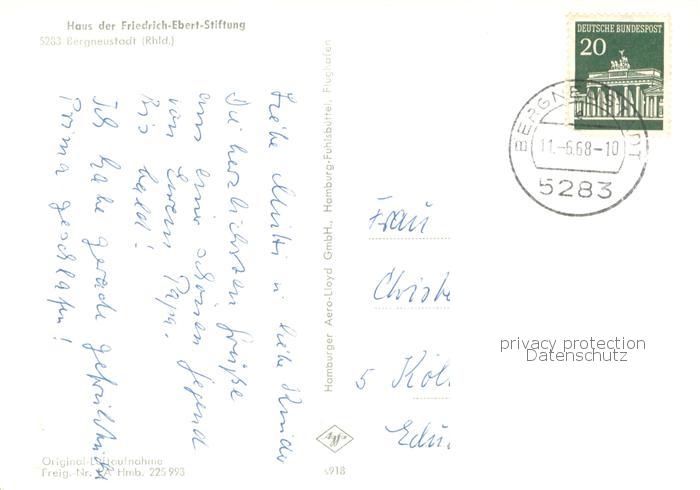 Haus der Friedrich-Ebert-Stiftung
5283 Bergneustadt (Rhld.)
Liebe Mutti u. liebe Kinder
Die herzlichsten Grüße
aus einer schönen Gegend
von Eurem Papa.
Bis bald!
Ich habe gerade gefrühstückt
Prima geschlafen!
Original-Luftaufnahme
Freig.-Nr. LA Hmb. 225 993
Hamburger Aero-Lloyd GmbH., Hamburg-Fuhlsbüttel, Flughafen
Agfa
s918
DEUTSCHE BUNDESPOST
20
BERGNEUSTADT
11.-6.68-10
5283
Frau
Christe
5 Köl
Edu
privacy protection
Datenschutz